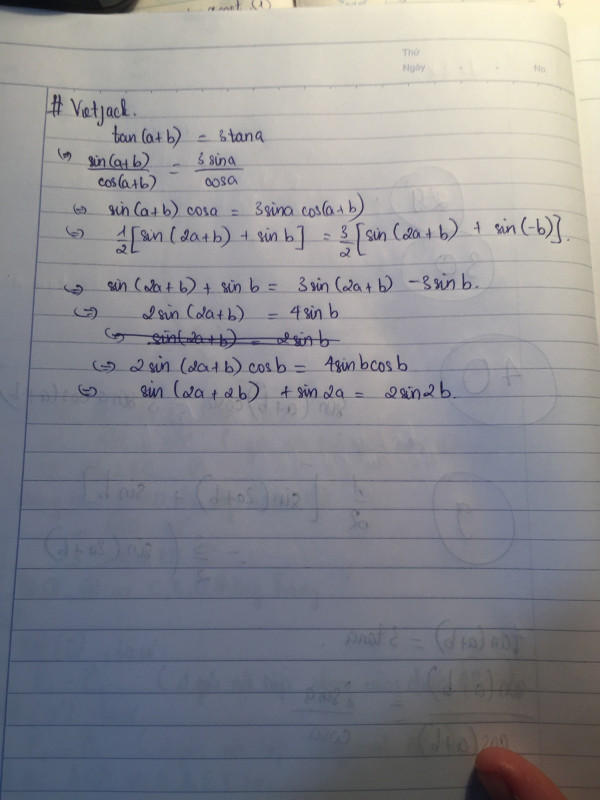 Thứ
Ngày No.
# Vietjack.
tan(a+b) = 3tana
⇔ sin(a+b)/cos(a+b) = 3sina/cosa
⇔ sin(a+b) cosa = 3sina cos(a+b)
⇔ 1/2[sin(2a+b) + sin b] = 3/2[sin(2a+b) + sin(-b)].
⇔ sin(2a+b) + sin b = 3sin(2a+b) - 3sin b.
⇔ 2sin(2a+b) = 4sin b
⇔ sin(2a+b) = 2sin b
⇔ 2sin(2a+b) cosb = 4sinbcosb
⇔ sin(2a+2b) + sin2a = 2sin2b.